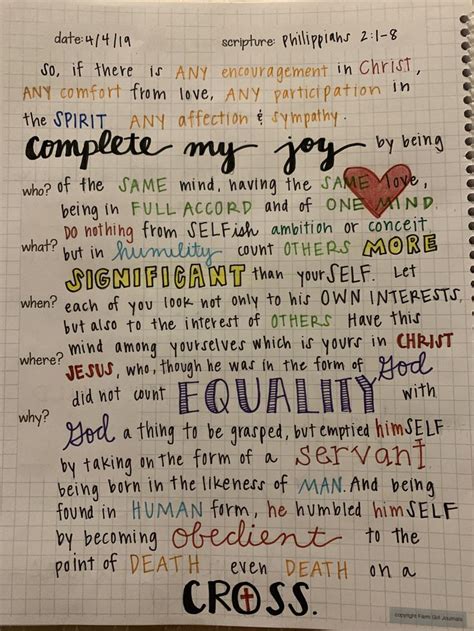 date: 4/4/19 scripture: Philippians 2:1-8
so, if there is ANY encouragement in Christ,
ANY comfort from love, ANY participation in
the SPIRIT ANY affection & sympathy.
complete my joy by being
who? of the SAME mind, having the SAME love,
being in FULL ACCORD and of ONE MIND.
Do nothing from SELFish ambition or conceit
what? but in humility count OTHERS MORE
SIGNIFICANT than yourSELF. Let
when? each of you look not only to his OWN INTERESTS,
but also to the interest of OTHERS. Have this
where? mind among yourselves which is yours in CHRIST
JESUS, who, though he was in the form of God
did not count EQUALITY with
why? God a thing to be grasped, but emptied himSELF
by taking on the form of a servant
being born in the likeness of MAN. And being
found in HUMAN form, he humbled himSELF
by becoming obedient to the
point of DEATH even DEATH on a
CROSS.
copyright Farm Girl Journals